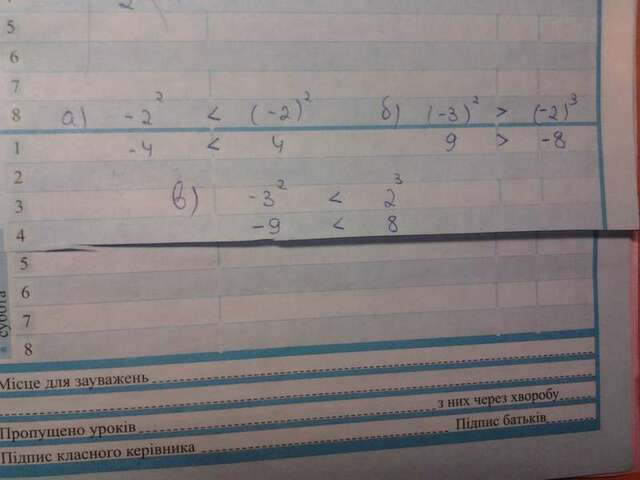 5
6
7
8 а) -2² < (-2)² б) (-3)² > (-2)³
1 -4 < 4 9 > -8
2
3 в) -3² < 2³
4 -9 < 8
5
6
7
8
субота
Місце для зауважень
з них через хворобу
Пропущено уроків
Підпис батьків
Підпис класного керівника